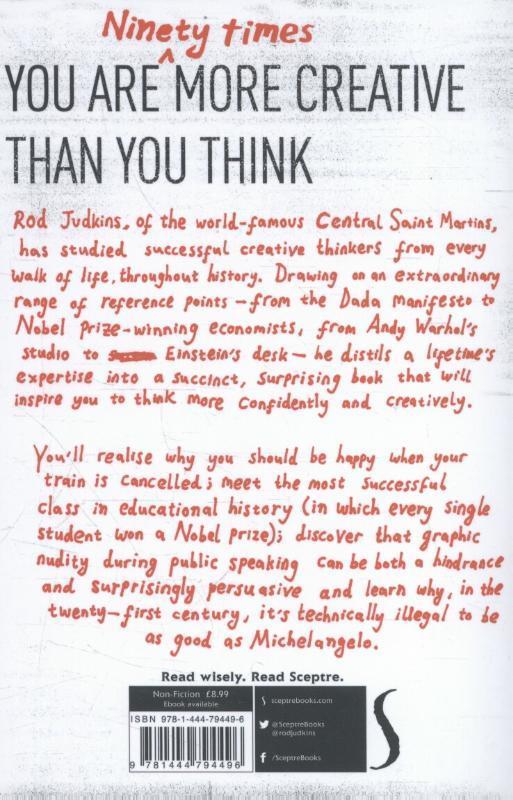 Ninety times
YOU ARE MORE CREATIVE
THAN YOU THINK
Rod Judkins, of the world-famous Central Saint Martins,
has studied successful creative thinkers from every
walk of life, throughout history. Drawing on an extraordinary
range of reference points – from the Dada Manifesto to
Nobel Prize-winning economists, from Andy Warhol's
studio to Einstein's desk – he distils a lifetime's
expertise into a succinct, surprising book that will
inspire you to think more confidently and creatively.
You'll realise why you should be happy when your
train is cancelled; meet the most successful
class in educational history (in which every single
student won a Nobel prize); discover that graphic
nudity during public speaking can be both a hindrance
and surprisingly persuasive and learn why, in the
twenty-first century, it's technically illegal to be
as good as Michelangelo.
Read wisely. Read Sceptre.
Non-Fiction £8.99
Ebook available
ISBN 978-1-444-79449-6
9 781444 794496
sceptrebooks.com
@SceptreBooks
@rodjudkins
/SceptreBooks